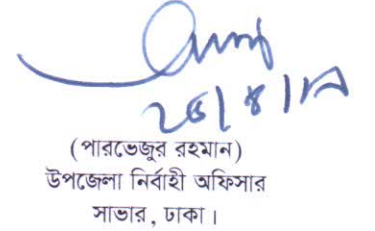 (পারভেজুর রহমান)
উপজেলা নির্বাহী অফিসার
সাভার, ঢাকা।